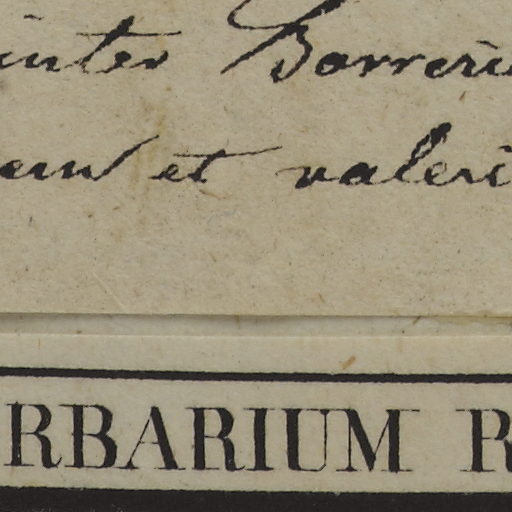 inter Borreri
eum et valeri
RBARIUM R